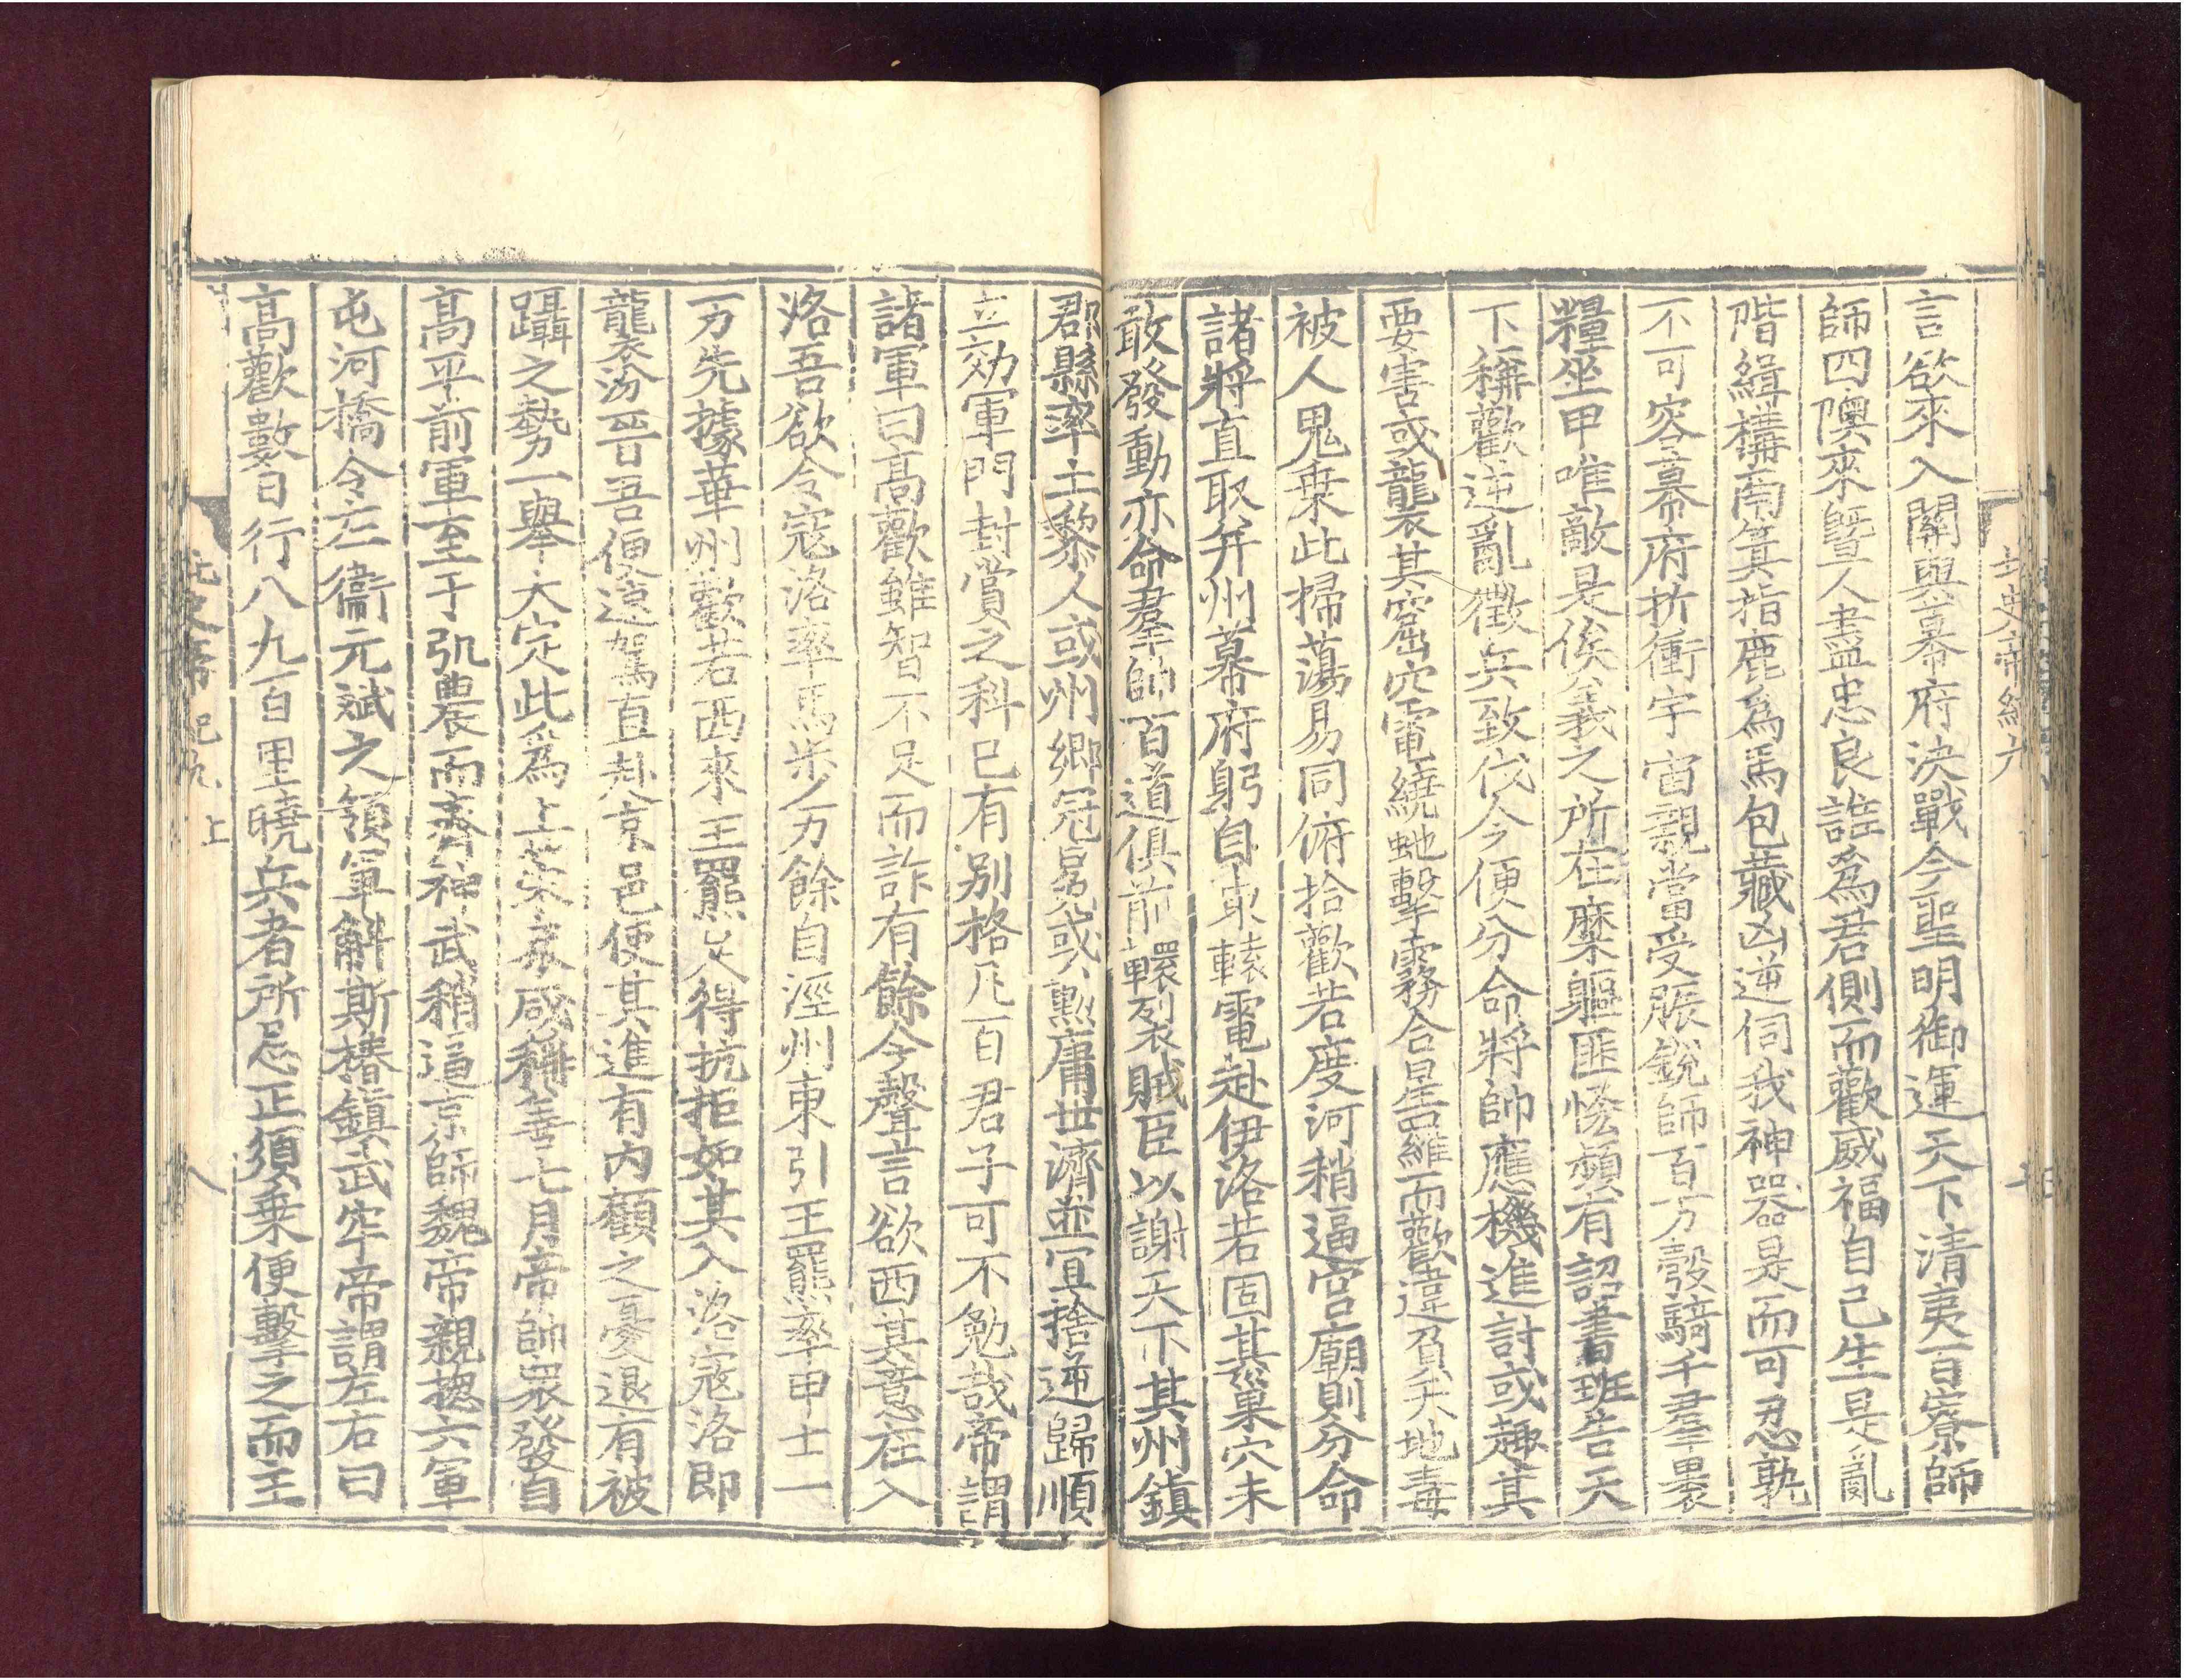 言欲來入關與幕府決戰今聖明御運天下清夷百寮師
師四隩來曁人盡忠良誰爲君側而歡威福自己生是亂
階緝構南箕指鹿爲馬包藏凶逆伺我神器是而可忍孰
不可容幕府折衝宇宙親當受脤銳師百万彀騎千羣裹
糧坐甲唯敵是俟義之所在糜軀匪恡頻有詔書班告天
下稱歡逆亂徵兵致伐今便分命將帥應機進討或趣其
要害或襲其窟穴電繞虵擊霧合星羅而歡違負天地毒
被人鬼乗此掃蕩易同俯拾歡若度河稍逼宫廟則分命
諸將直取并州幕府躬自東轅電赴伊洛若固其巢穴未
敢發動亦命羣帥百道俱前轘裂賊臣以謝天下其州鎮
北史帝紀九
郡縣率土黎人或州鄉冠冕或勲庸世濟並冝捨逆歸順
立効軍門封賞之科已有别格凡百君子可不勉哉帝謂
諸軍曰高歡雖智不足而詐有餘今聲言欲西其意在入
洛吾欲令寇洛率馬步万餘自涇州東引王羆率甲士一
万先據華州歡若西來王羆足得抗拒如其入洛寇洛即
襲汾晉吾便速駕直赴京邑使其進有内顧之憂退有被
躡之勢一舉大定此爲上策衆咸稱善七月帝帥衆發自
高平前軍至于弘農而齊神武稍逼京師魏帝親揔六軍
屯河橋令左衞元斌之領軍斛斯椿鎮武牢帝謂左右曰
高歡數日行八九百里曉兵者所忌正須乗便擊之而王
北史帝紀九上
八